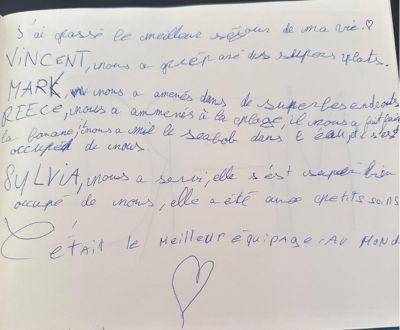 J'ai passé le meilleure séjour de ma vie.♡
VINCENT, nous a préparé des supers plats.
MARK, nous a amenés dans de superbes endroits
REECE, nous a ammenés à la plage, il nous a fait faire
la banane, nous a mis le seabob dans l'eau, s'est
occupé de nous
SYLVIA, nous a servi, elle s'est super bien
occupé de nous, elle a été aux petits soins
C'était le MEILLEUR ÉQUIPAGE. AU MOND